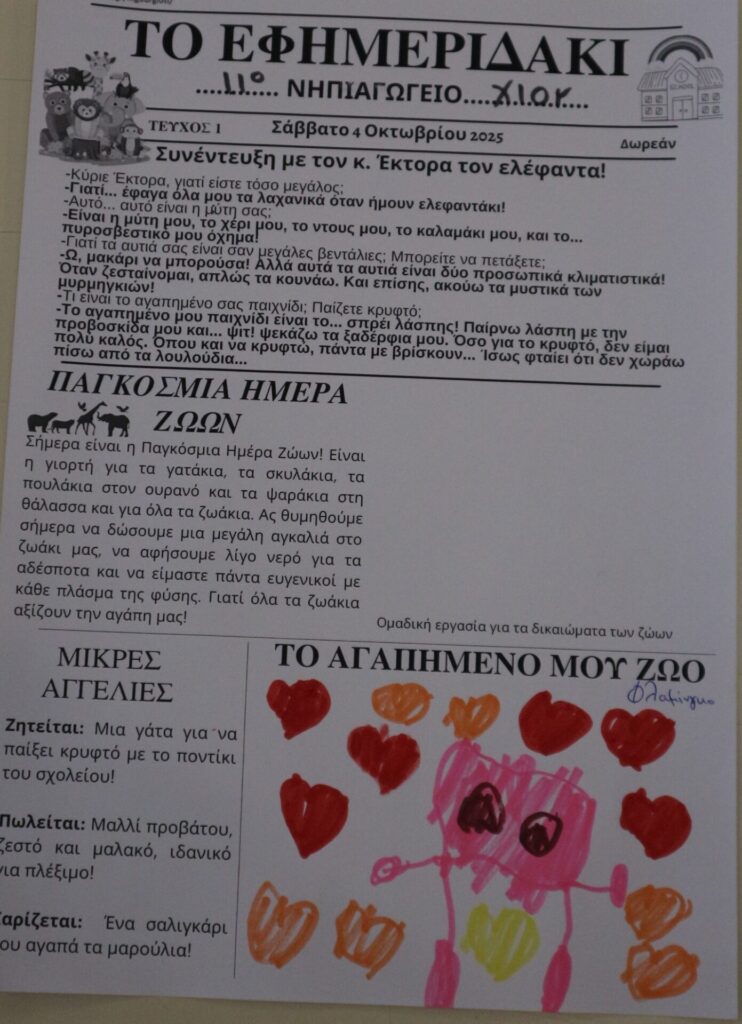 ΤΟ ΕΦΗΜΕΡΙΔΑΚΙ
.....11º..... ΝΗΠΙΑΓΩΓΕΙΟ....Χ.Ι.Ο.Υ....
ΤΕΥΧΟΣ 1 Σάββατο 4 Οκτωβρίου 2025 Δωρεάν
Συνέντευξη με τον κ. Έκτορα τον ελέφαντα!
-Κύριε Έκτορα, γιατί είστε τόσο μεγάλος;
-Γιατί... έφαγα όλα μου τα λαχανικά όταν ήμουν ελεφαντάκι!
-Αυτό... αυτό είναι η μύτη σας;
-Είναι η μύτη μου, το χέρι μου, το ντους μου, το καλαμάκι μου, και το...
πυροσβεστικό μου όχημα!
-Γιατί τα αυτιά σας είναι σαν μεγάλες βεντάλιες; Μπορείτε να πετάξετε;
-Ω, μακάρι να μπορούσα! Αλλά αυτά τα αυτιά είναι δύο προσωπικά κλιματιστικά!
Όταν ζεσταίνομαι, απλώς τα κουνάω. Και επίσης, ακούω τα μυστικά των
μυρμηγκιών!
-Τι είναι το αγαπημένο σας παιχνίδι; Παίζετε κρυφτό;
-Το αγαπημένο μου παιχνίδι είναι το... σπρέι λάσπης! Παίρνω λάσπη με την
προβοσκίδα μου και... ψιτ! ψεκάζω τα ξαδέρφια μου. Όσο για το κρυφτό, δεν είμαι
πολύ καλός. Όπου και να κρυφτώ, πάντα με βρίσκουν... Ίσως φταίει ότι δεν χωράω
πίσω από τα λουλούδια...
ΠΑΓΚΟΣΜΙΑ ΗΜΕΡΑ
ΖΩΩΝ
Σήμερα είναι η Παγκόσμια Ημέρα Ζώων! Είναι
η γιορτή για τα γατάκια, τα σκυλάκια, τα
πουλάκια στον ουρανό και τα ψαράκια στη
θάλασσα και για όλα τα ζωάκια. Ας θυμηθούμε
σήμερα να δώσουμε μια μεγάλη αγκαλιά στο
ζωάκι μας, να αφήσουμε λίγο νερό για τα
αδέσποτα και να είμαστε πάντα ευγενικοί με
κάθε πλάσμα της φύσης. Γιατί όλα τα ζωάκια
αξίζουν την αγάπη μας!
Ομαδική εργασία για τα δικαιώματα των ζώων
ΜΙΚΡΕΣ
ΑΓΓΕΛΙΕΣ
Ζητείται: Μια γάτα για να
παίξει κρυφτό με το ποντίκι
του σχολείου!
Πωλείται: Μαλλί προβάτου,
ζεστό και μαλακό, ιδανικό
για πλέξιμο!
Χαρίζεται: Ένα σαλιγκάρι
που αγαπά τα μαρούλια!
ΤΟ ΑΓΑΠΗΜΕΝΟ ΜΟΥ ΖΩΟ
Φλαμίνγκο